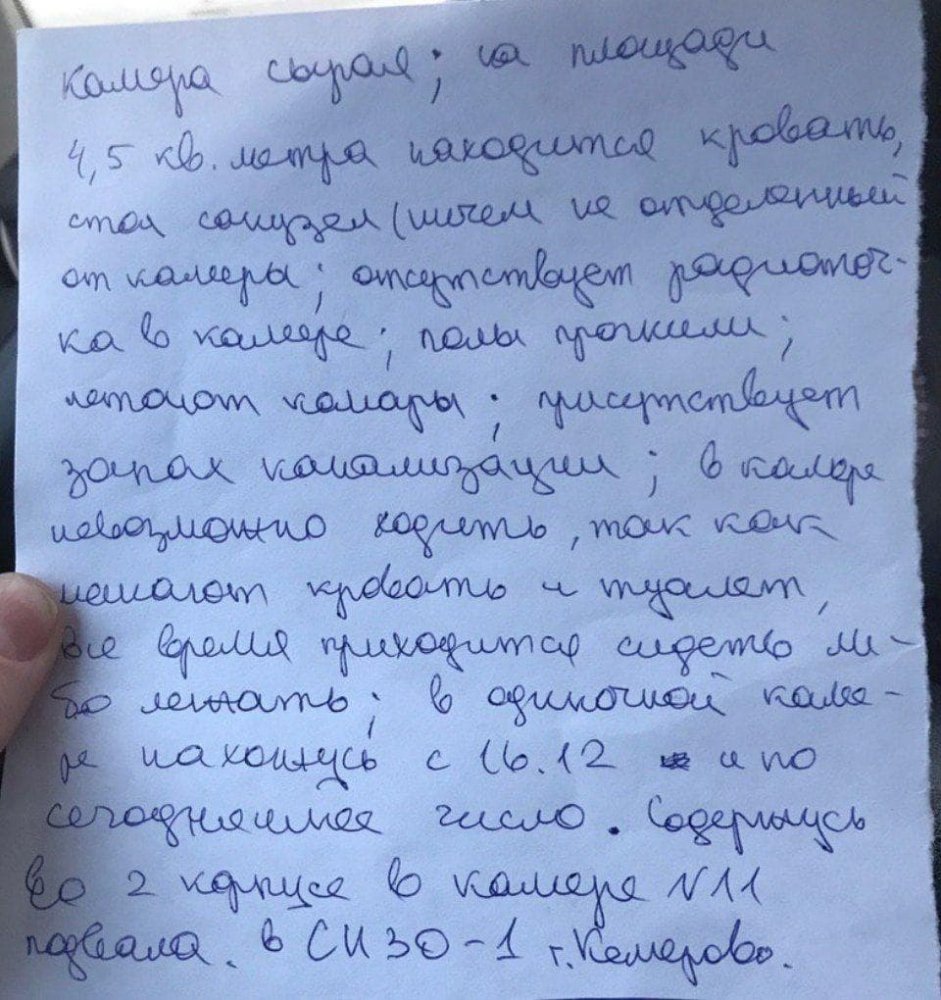 Камера сырая; на площади
4,5 кв. метра находится кровать,
стол санузел (ничем не отделенный
от камеры; отсутствует радиоточ-
ка в камере; полы прогнили;
летают комары; присутствует
запах канализации; в камере
невозможно ходить, так как
мешают кровать и туалет,
все время приходится сидеть ли-
бо лежать; в одиночной каме-
ре нахожусь с 16.12 и по
сегодняшнее число. Содержусь
во 2 корпусе в камере №11
подвала. в СИЗО-1 г. Кемерово.